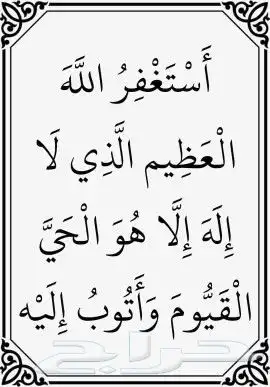 أَسْتَغْفِرُ اللَّهَ
الْعَظِيم الَّذِي لَا
إِلَهَ إِلَّا هُوَ الْحَيَّ
الْقَيُّومَ وَأَتُوبُ إِلَيْه
حراج